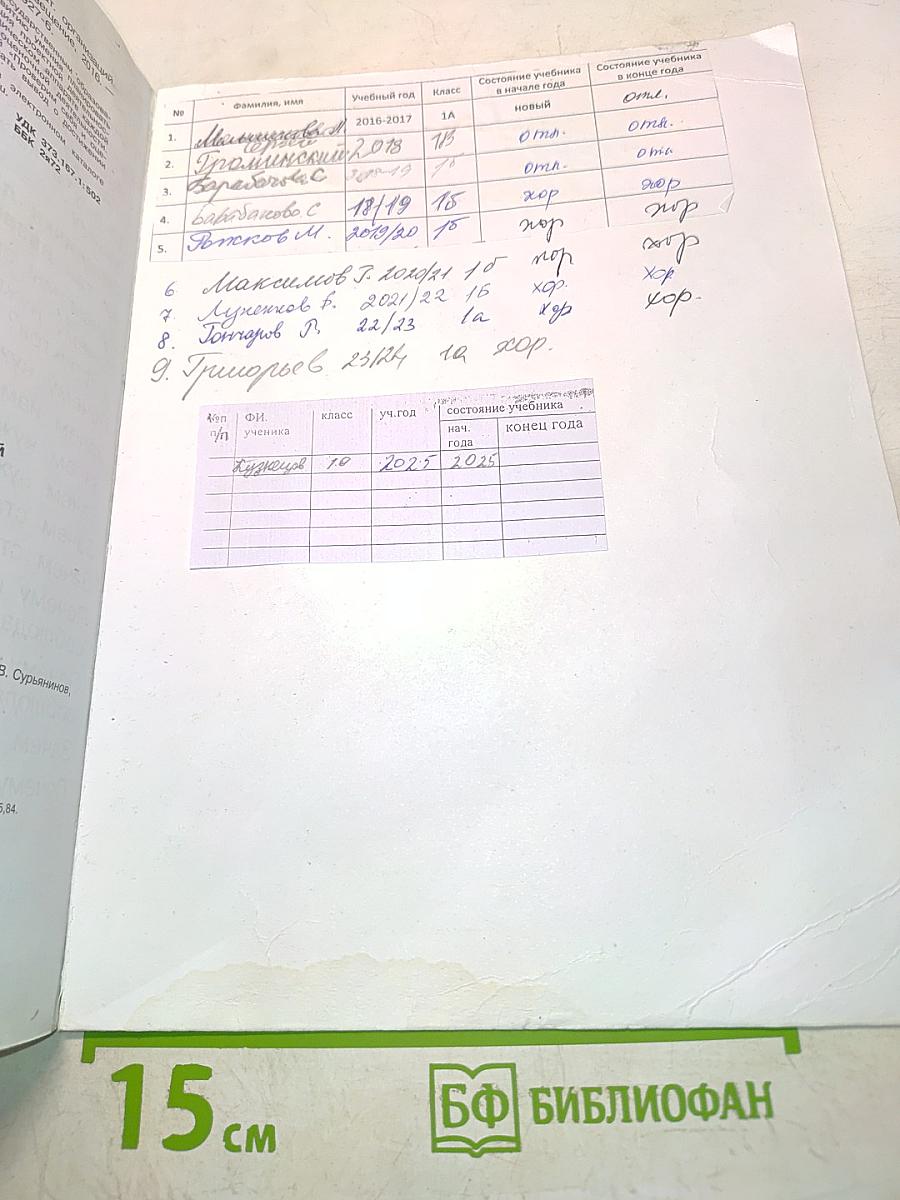 организаций
ещение, 2016. —
27-6.
УДК 373.167.1:502
ББК 2я72
В. Сурьянинов,
5,84.
№ Фамилия, имя Учебный год Класс Состояние учебника в начале года Состояние учебника в конце года
1. 2016-2017 1А новый отл.
2. Громинский 2018 1В отл. отл.
3. Барабанова С 1б отл. отл
4. Барабанова С 18/19 1б хор хор
5. Рыжков М. 2019/20 1б хор хор
6 Максимов Г. 2020/21 1б хор хор
7. 2021/22 1Б хор. хор
8. Гончаров Р. 22/23 1а хор хор.
9. Григорьев 23/24 1а хор.
№п п/п ФИ. ученика класс уч.год состояние учебника
нач. года конец года
Кузнецов 2025 2025
15 см
БФ БИБЛИОФАН